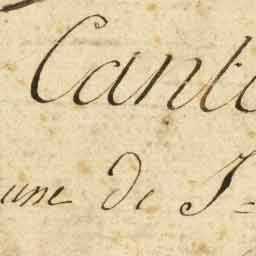 Canto
une de J-